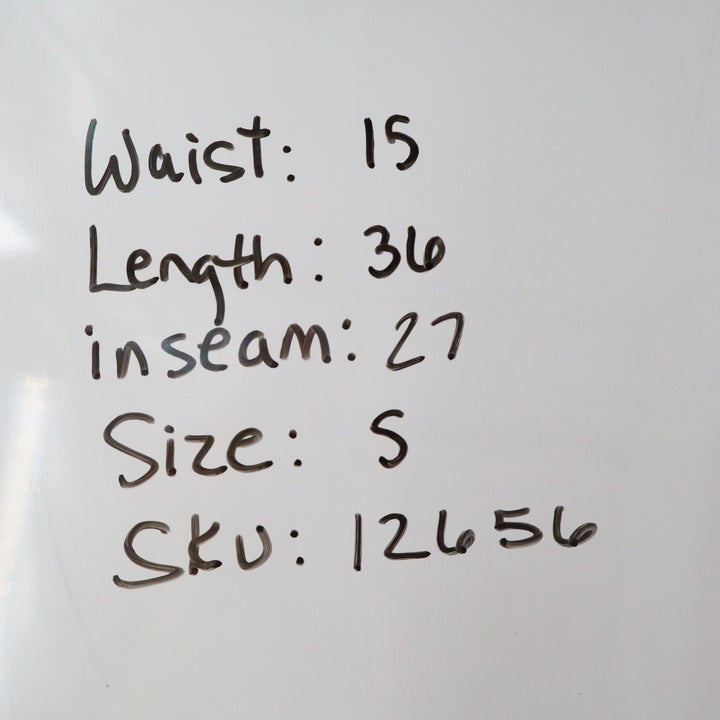 Waist: 15
Length: 36
inseam: 27
Size: S
Sku: 12656